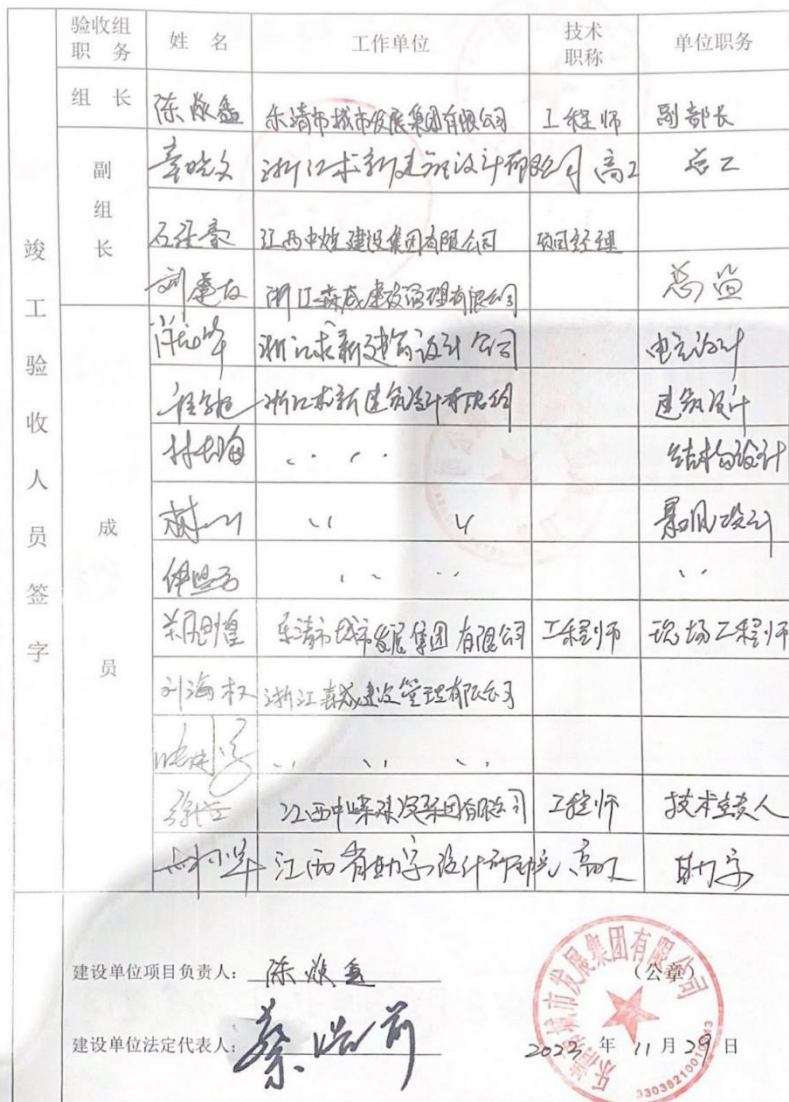 验收组职务 姓名 工作单位 技术职称 单位职务
竣工验收人员签字
组长 陈焕鑫 乐清市城市发展集团有限公司 工程师 副部长
副组长
浙江求新建筑设计有限公司 高工 总工
江西中煤建设集团有限公司 项目经理
浙江森威建设管理有限公司 总监
成员
浙江求新建筑设计公司 电气设计
浙江求新建筑设计有限公司 建筑设计
林长海 〃 〃 结构设计
〃 〃
〃 〃 〃
乐清市城市发展集团有限公司 工程师 现场工程师
刘海权 浙江森威建设管理有限公司
〃 〃 〃
江西中煤建设集团有限公司 工程师 技术负责人
江西省勘察设计研究院 高工 勘察
建设单位项目负责人: 陈焕鑫 (公章)
建设单位法定代表人: 蔡浩前
2023 年 11 月 29 日
乐清市城市发展集团有限公司